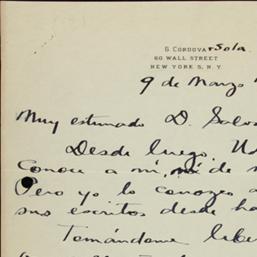 G. CORDOVA y Sola
60 WALL STREET
NEW YORK 5, N. Y.
9 de Marzo
Muy estimado D. Salv
Desde luego, Ud
Conoce a mí, ni de
Pero yo lo conozco a
sus escritos desde ha
Tomándome liber